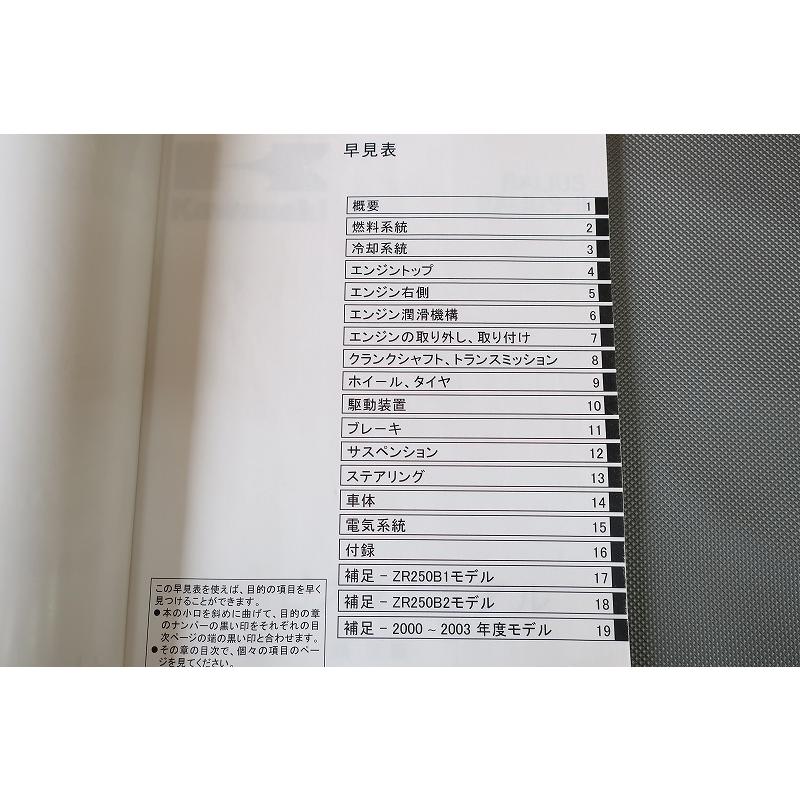 早見表
概要 1
燃料系統 2
冷却系統 3
エンジントップ 4
エンジン右側 5
エンジン潤滑機構 6
エンジンの取り外し、取り付け 7
クランクシャフト、トランスミッション 8
ホイール、タイヤ 9
駆動装置 10
ブレーキ 11
サスペンション 12
ステアリング 13
車体 14
電気系統 15
付録 16
補足 − ZR250B1モデル 17
補足 − ZR250B2モデル 18
補足 − 2000 ~ 2003 年度モデル 19
この早見表を使えば、目的の項目を早く
見つけることができます。
●本の小口を斜めに曲げて、目的の章
のナンバーの黒い印をそれぞれの目
次ページの端の黒い印と合わせます。
●その章の目次で、個々の項目のペー
ジを見てください。